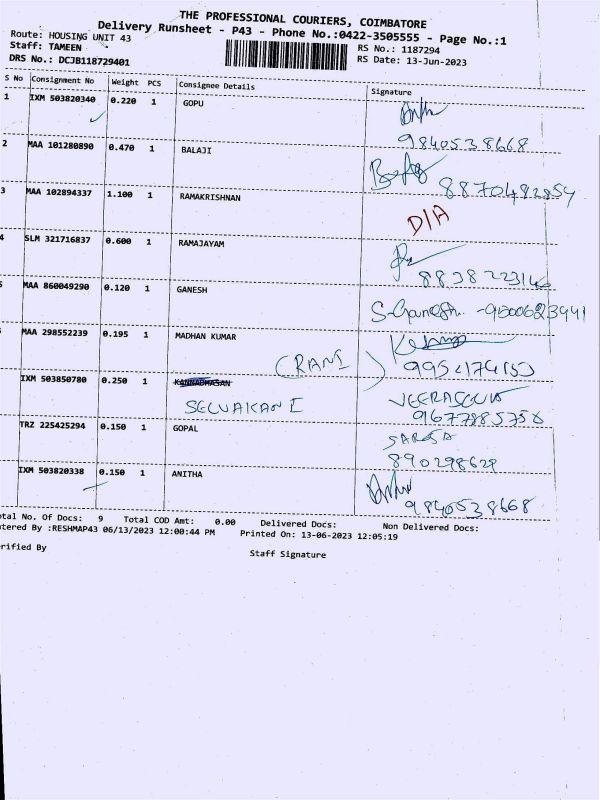 THE PROFESSIONAL COURIERS, COIMBATORE
Delivery Runsheet - P43 - Phone No.:0422-3505555 - Page No.:1
Route: HOUSING UNIT 43
Staff: TAMEEN
RS No.: 1187294
DRS No.: DCJB118729401
RS Date: 13-Jun-2023
S No Consignment No Weight PCS Consignee Details Signature
1 IXM 503820340 0.220 1 GOPU
9840538668
2 MAA 101280890 0.470 1 BALAJI
8870482854
3 MAA 102894337 1.100 1 RAMAKRISHNAN
D/A
4 SLM 321716837 0.600 1 RAMAJAYAM
MAA 860049290 0.120 1 GANESH
S-Ganesh. -9500623941
MAA 298552239 0.195 1 MADHAN KUMAR
(RANI)
IXM 503850780 0.250 1 KANNADHASAN
SELVAKANI
9677885758
TRZ 225425294 0.150 1 GOPAL
SAROSA
890298629
IXM 503820338 0.150 1 ANITHA
9840538668
otal No. Of Docs: 9 Total COD Amt: 0.00 Delivered Docs: Non Delivered Docs:
ntered By :RESHMAP43 06/13/2023 12:00:44 PM Printed On: 13-06-2023 12:05:19
erified By
Staff Signature